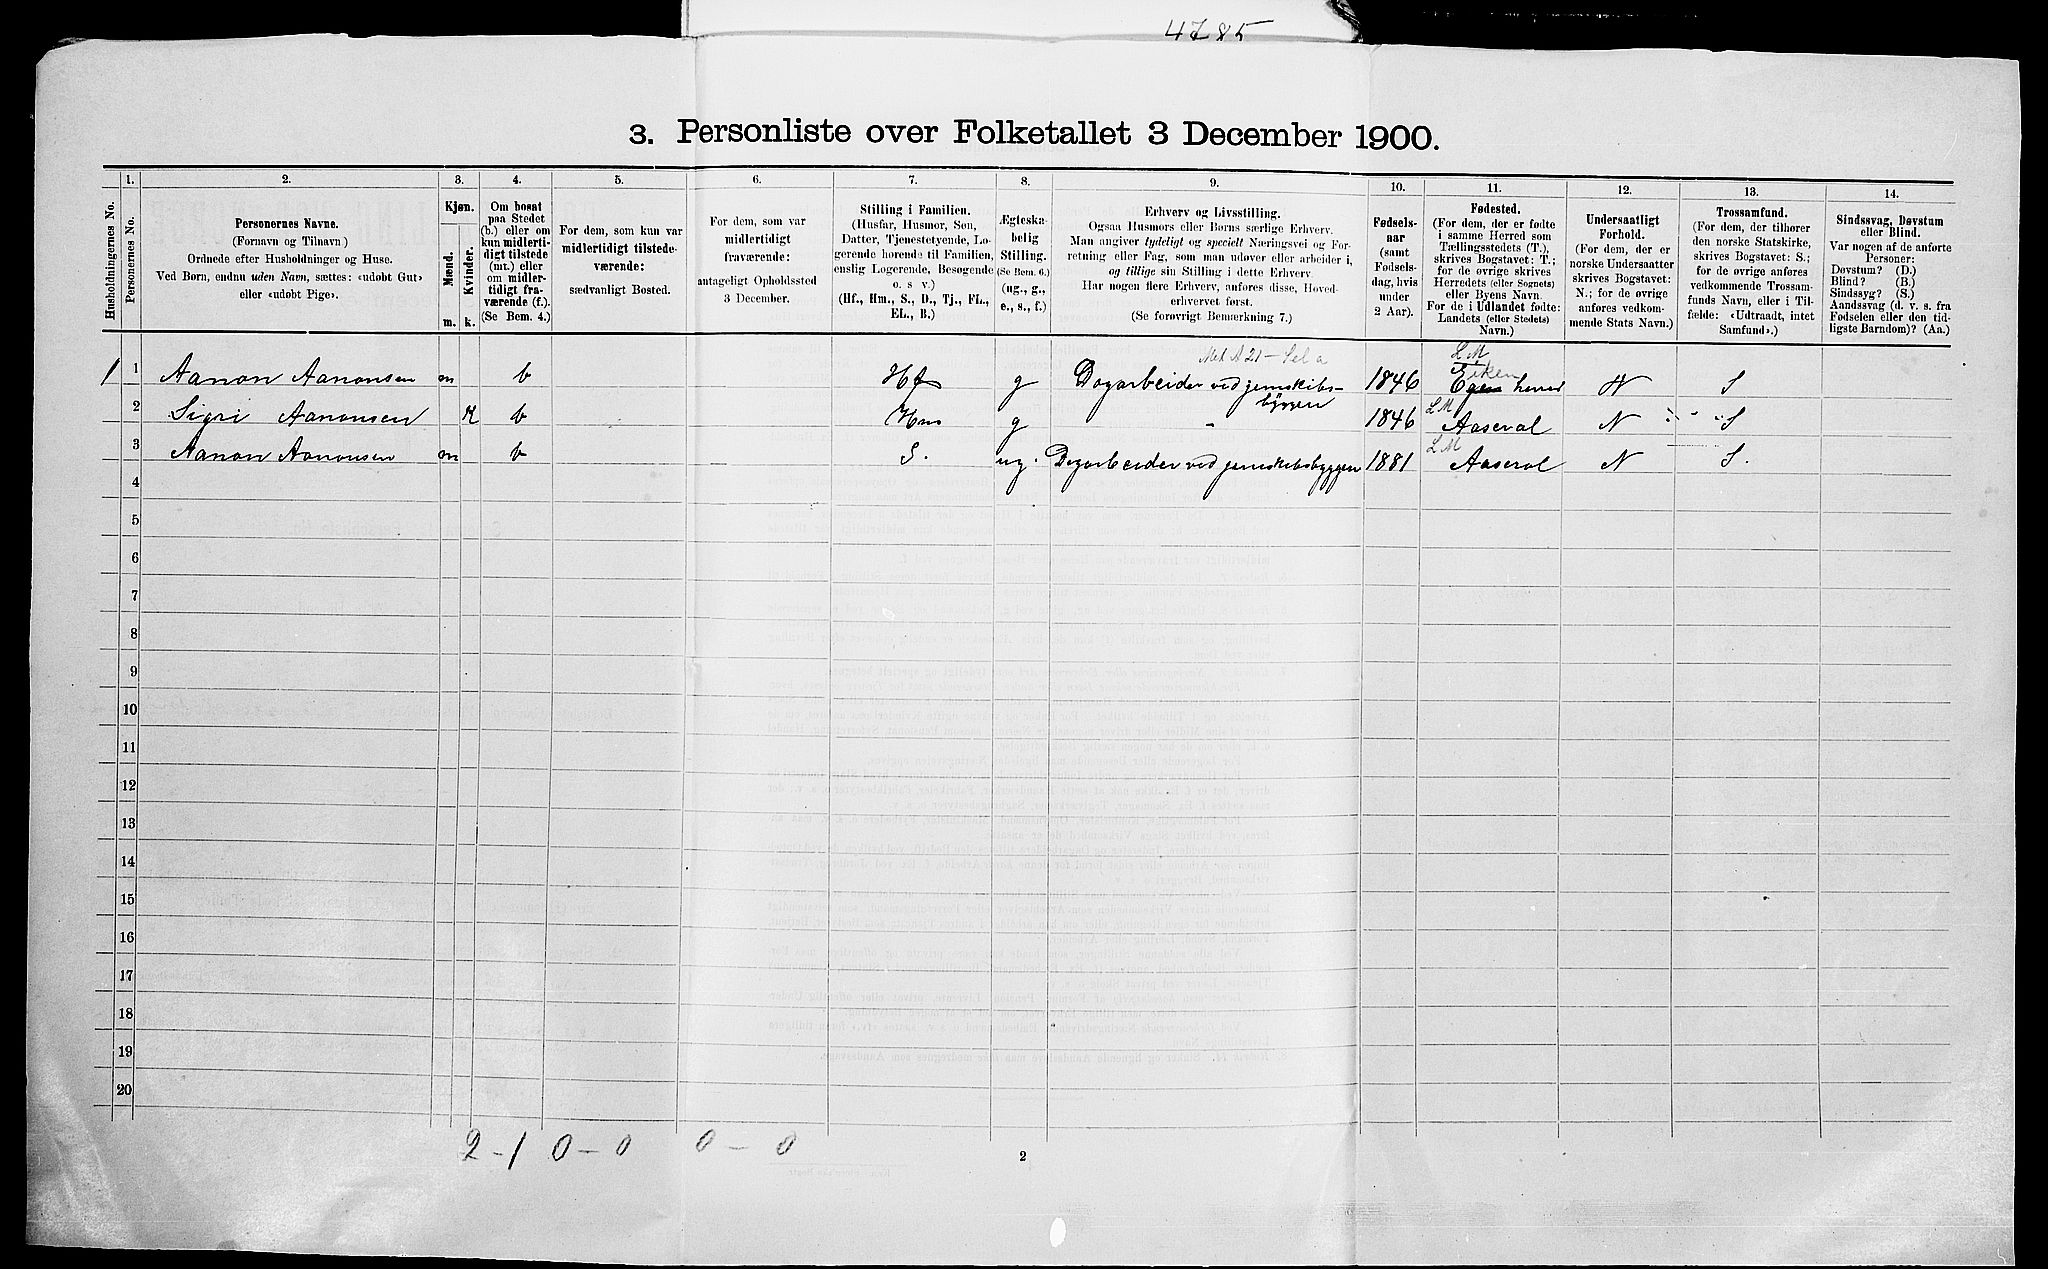 4785
3. Personliste over Folketallet 3 December 1900.
1. 2. 3. 4. 5. 6. 7. 8. 9. 10. 11. 12. 13. 14.
Husholdningernes No.
Personernes No.
Personernes Navne.
(Fornavn og Tilnavn)
Ordnede efter Husholdninger og Huse.
Ved Børn, endnu uden Navn, sættes: «udøbt Gut»
eller «udøbt Pige».
Kjøn.
Mænd.
Kvinder.
m. k.
Om bosat
paa Stedet
(b.) eller om
kun midlerti-
digt tilstede
(mt.) eller
om midler-
tidigt fra-
værende (f.).
(Se Bem. 4.)
For dem, som kun var
midlertidigt tilstede-
værende:
sædvanligt Bosted.
For dem, som var
midlertidigt
fraværende:
antageligt Opholdssted
3 December.
Stilling i Familien.
(Husfar, Husmor, Søn,
Datter, Tjenestetyende, Lo-
gerende hørende til Familien,
enslig Logerende, Besøgende
o. s. v.)
(Hf., Hm., S., D., Tj., FL.,
EL., B.)
Ægteska-
belig
Stilling.
(Se Bem. 6.)
(ug., g.,
e., s., f.)
Erhverv og Livsstilling.
Ogsaa Husmors eller Børns særlige Erhverv.
Man angiver tydeligt og specielt Næringsvei og For-
retning eller Fag, som man udøver eller arbeider i,
og tillige sin Stilling i dette Erhverv.
Har nogen flere Erhverv, anføres disse, Hoved-
erhvervet først.
(Se forøvrigt Bemærkning 7.)
Fødsels-
aar
(samt
Fødsels-
dag, hvis
under
2 Aar).
Fødested.
(For dem, der er fødte
i samme Herred som
Tællingsstedets (T.),
skrives Bogstavet: T.;
for de øvrige skrives
Herredets (eller Sognets)
eller Byens Navn.
For de i Udlandet fødte:
Landets (eller Stedets)
Navn.)
Undersaatligt
Forhold.
(For dem, der er
norske Undersaatter
skrives Bogstavet:
N.; for de øvrige
anføres vedkom-
mende Stats Navn.)
Trossamfund.
(For dem, der tilhører
den norske Statskirke,
skrives Bogstavet: S.;
for de øvrige anføres
vedkommende Trossam-
funds Navn, eller i Til-
fælde: «Udtraadt, intet
Samfund».)
Sindssvag, Døvstum
eller Blind.
Var nogen af de anførte
Personer:
Døvstum? (D.)
Blind? (B.)
Sindssyg? (S.)
Aandssvag (d. v. s. fra
Fødselen eller den tid-
ligste Barndom)? (Aa.)
L M
1 1 Aanon Aanonsen m b Hf g Dagarbeider ved jernskibs- 1846 Eiken herred N S
byggeri
L M
2 Sigri Aanonsen K b Hm g " 1846 Aaseral N S
L M
3 Aanon Aanonsen m b S. ug. Dagarbeider ved jernskibsbyggeri 1881 Aaseral N S.
4
5
6
7
8
9
10
11
12
13
14
15
16
17
18
19
20
2 - 1 0 - 0 0 - 0
2